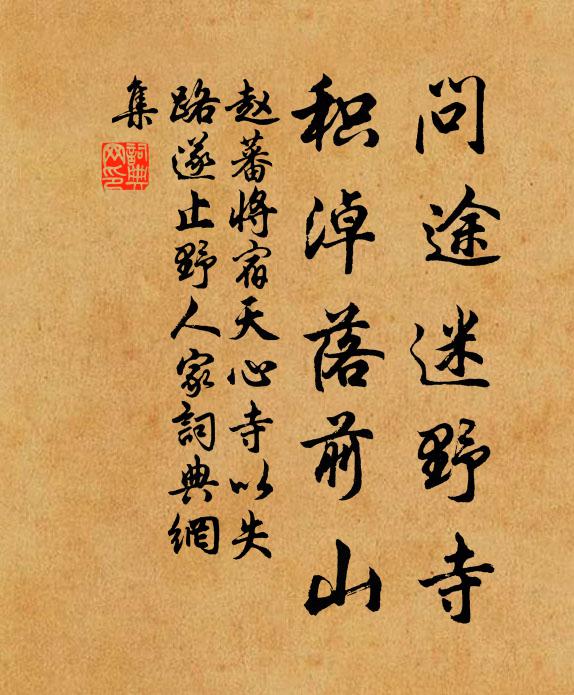 问途迷野寺
积淖落前山
赵蕃将宿天心寺以失
路遂止野人家詞典網
集
詞典網印